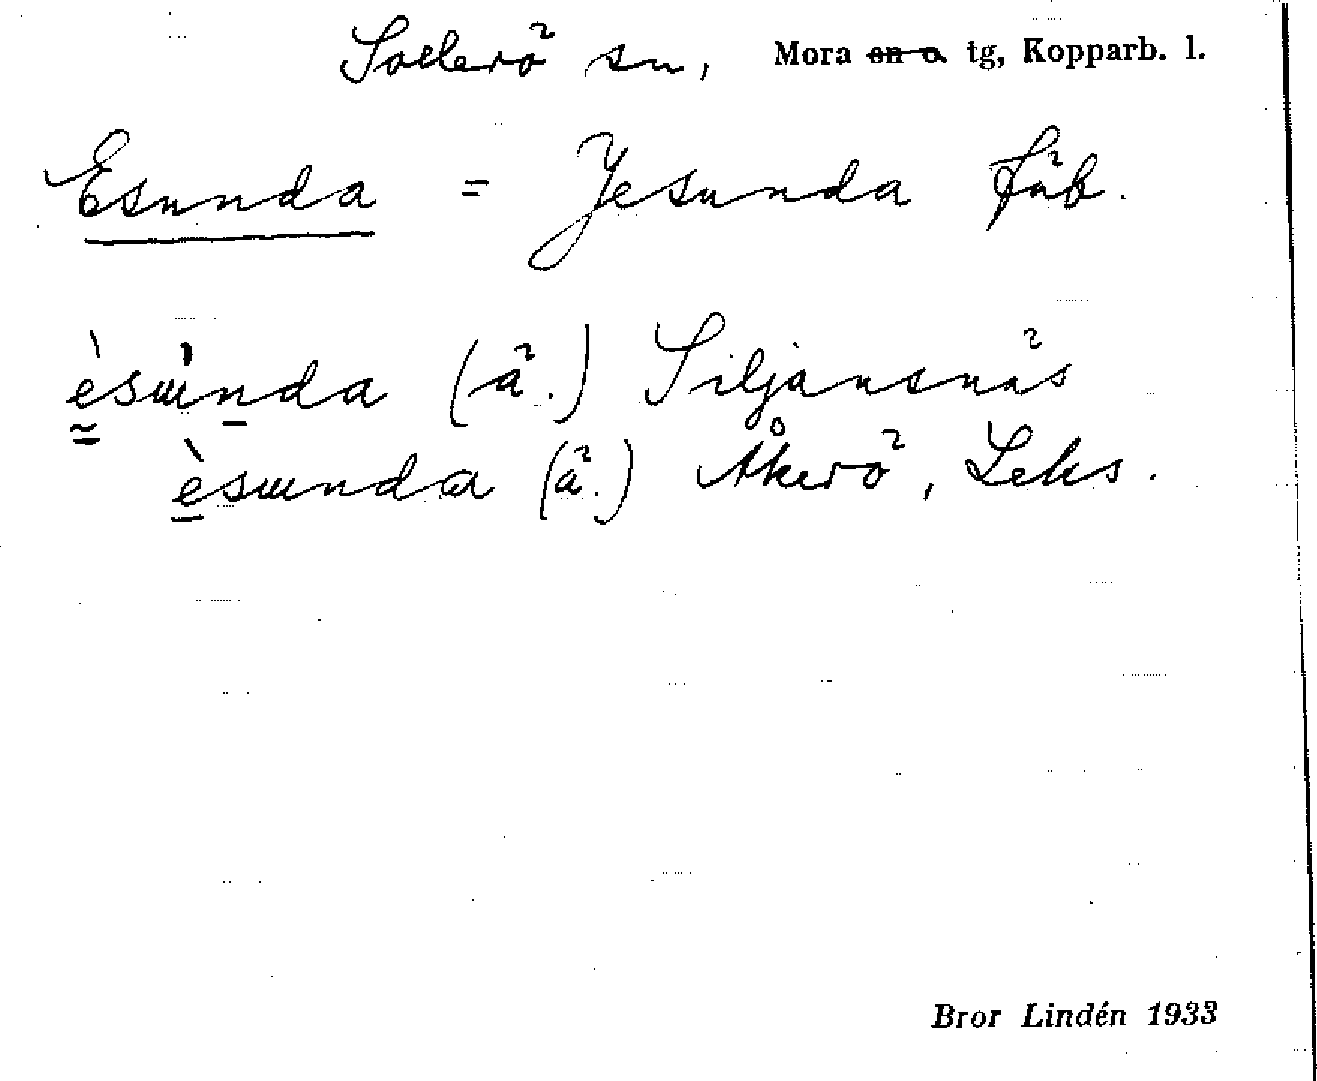 Sollerö sn, Mora sn o. tg, Kopparb. l.
Esunda = Jesunda fäb.
èsɯ̀nda (ä.) Siljansnäs
èsɯnda (ä.) Åkerö, Leks.
Bror Lindén 1933